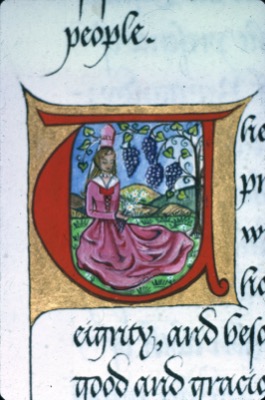 people.
he
pr
w
ho
eignty, and beso
good and gracio